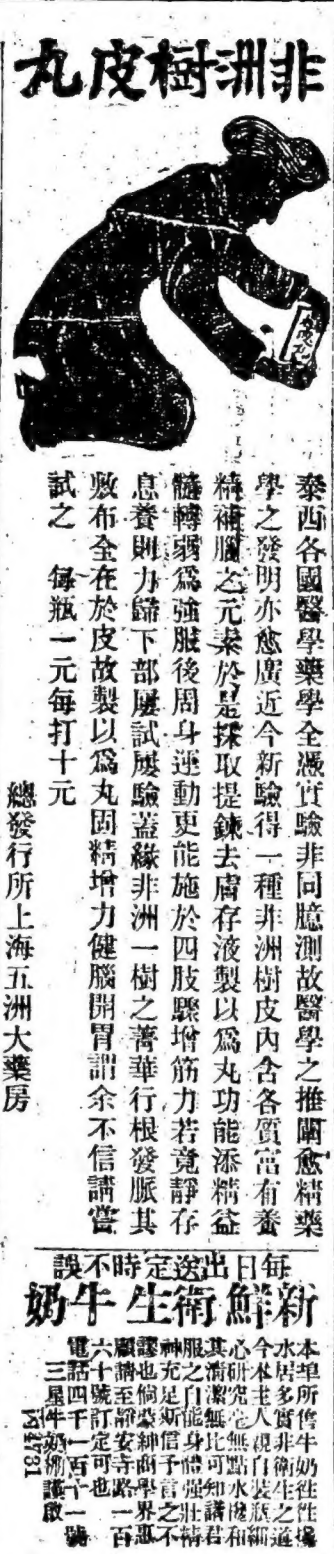 非洲樹皮丸
泰西各國醫學藥學全憑實驗非同臆測故醫學之推闡愈精藥
學之發明亦愈廣近今新驗得一種非洲樹皮內含各質富有養
精補腦之元素於是採取提鍊去膚存液製以爲丸功能添精益
髓轉弱爲強服後周身運動更能施於四肢驟增筋力若竟靜存
息養則力歸下部屢試屢驗蓋緣非洲一樹之菁華行根發脈其
敷布全在於皮故製以爲丸固精增力健腦開胃謂余不信請嘗
試之 每瓶一元每打十元
總發行所上海五洲大藥房
每日出送定時不誤
新鮮衛生牛奶
本埠所售牛奶往往攙
水居多實非衛生之道
今本主人親自裝瓶細
心研究毫無點水攙和
其清潔無比可知諸君
服之自能身體強壯精
神充足斯信予言之不
謬也倘蒙紳商學界惠
顧請至靜安寺路一百
六十號訂定可也
電話四千一百十一號
三星牛奶棚謹啟